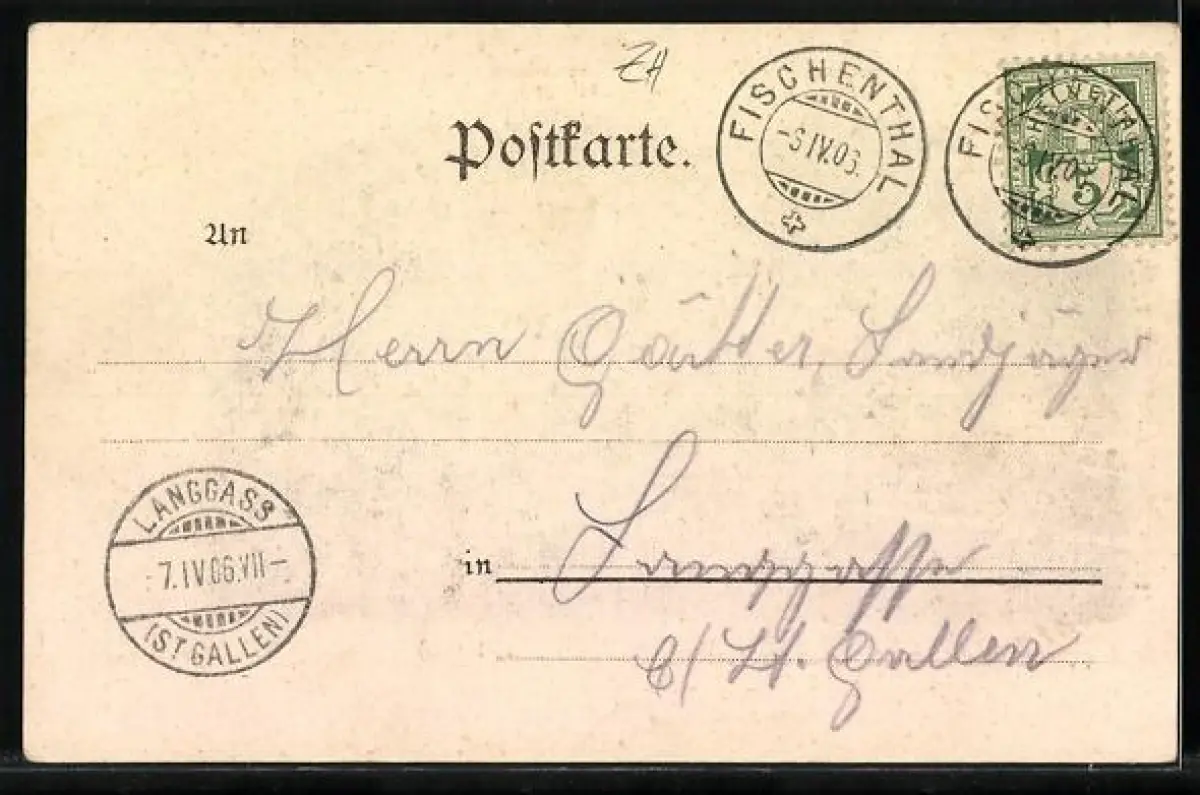 ZH
Postkarte.
FISCHENTHAL
-6.IV.06.
HELVETIA
5
FISCHENTHAL
An
Herrn Gätter, Landjäger
LANGGASS
7.IV.06.VII-
(ST GALLEN)
in Langgasse
b/ St. Gallen